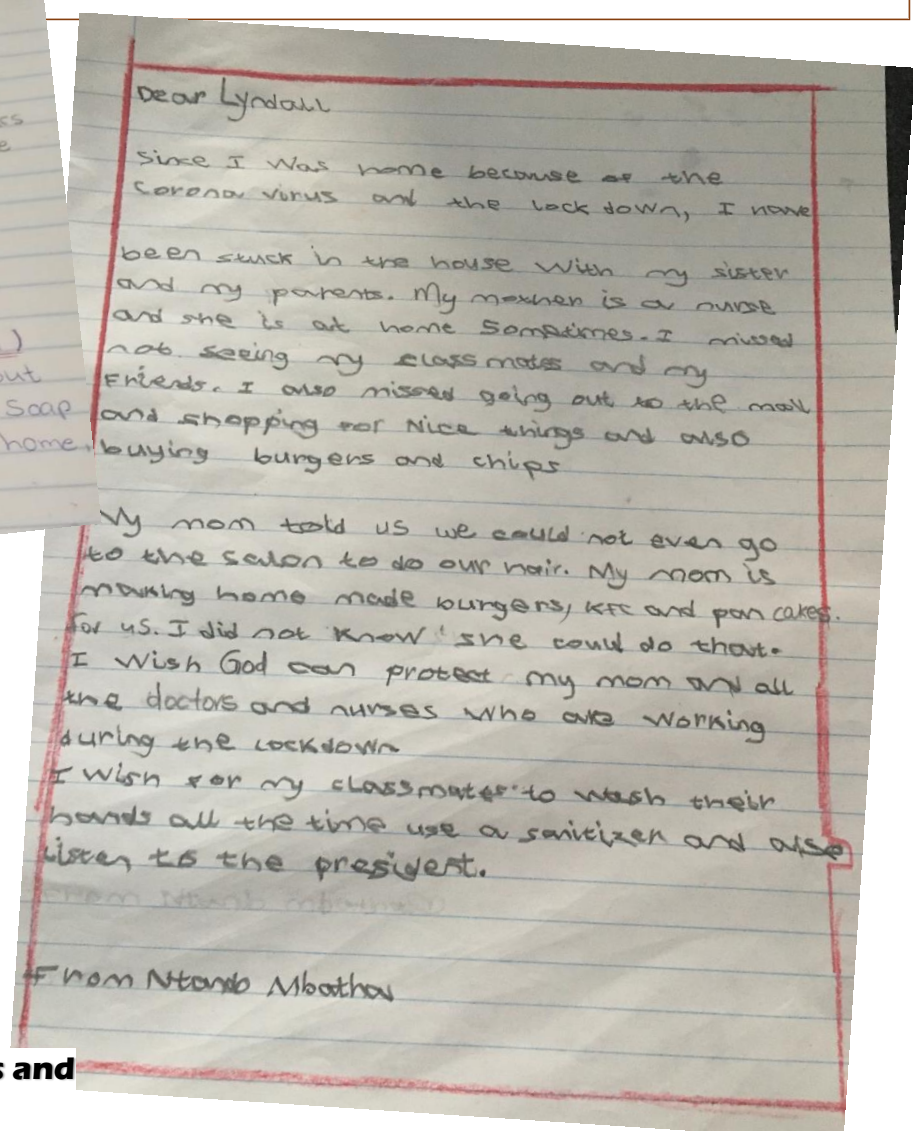 ss
e
)
out
soap
home.
Dear Lyndall
Since I was home because of the
Corona virus and the lock down, I have
been stuck in the house with my sister
and my parents. My mother is a nurse
and she is at home Sometimes. I missed
not seeing my classmates and my
Friends. I also missed going out to the mall
and shopping for Nice things and also
buying burgers and chips
My mom told us we could not even go
to the salon to do our hair. My mom is
making home made burgers, KFC and pan cakes.
for us. I did not know she could do that.
I wish God can protect my mom and all
the doctors and nurses who are working
during the lockdown
I wish for my classmates to wash their
hands all the time use a sanitizer and also
Listen to the president.
From Ntando Mbatha
From Ntando Mbatha
s and